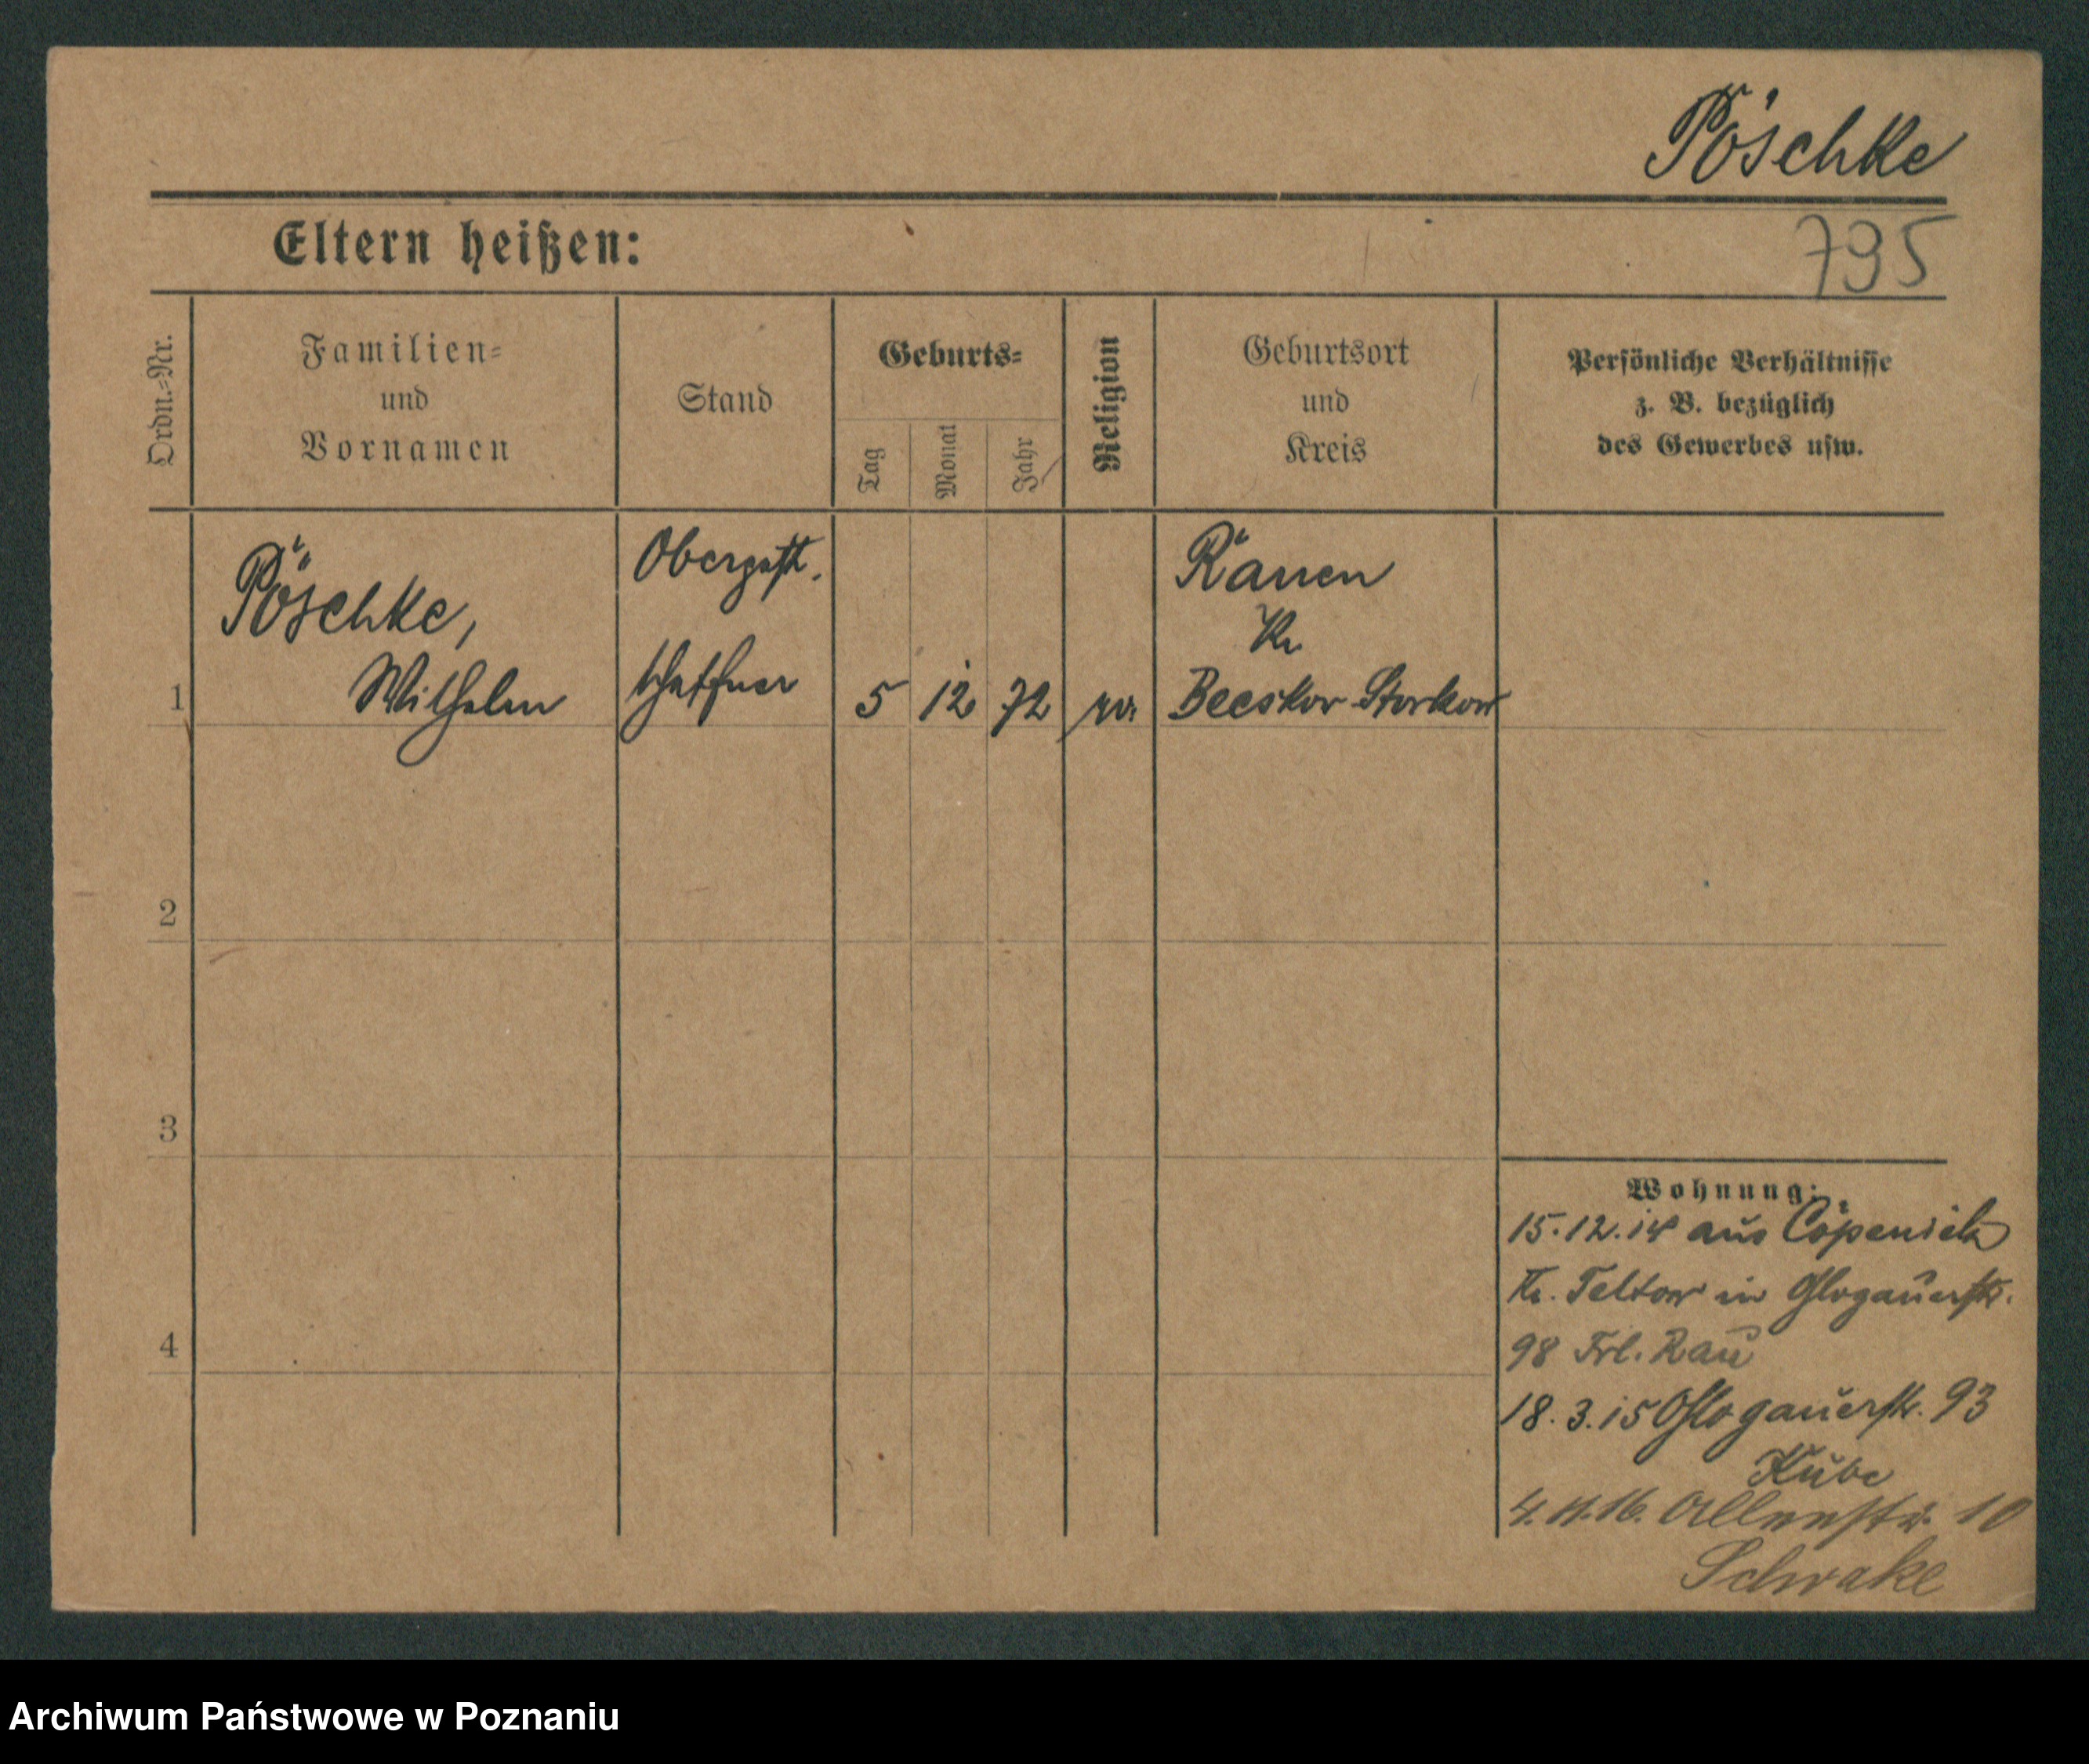 Pöschke
Eltern heißen:
795
Ordn.-Nr.
Familien-
und
Vornamen
Stand
Geburts-
Tag
Monat
Jahr
Religion
Geburtsort
und
Kreis
Persönliche Verhältnisse
z. B. bezüglich
des Gewerbes usw.
1
Pöschke,
Wilhelm
Oberpost.
schaffner
5
12
72
ev.
Räuen
Kr
Beeskow Storkow
2
3
4
Wohnung:
15.12.14 aus Cöpenick
Kr. Teltow in Glogauerstr.
98 Frl. Rau
18.3.15 Glogauerstr. 93
Kube
4.11.16. 10
Schwake
Archiwum Państwowe w Poznaniu